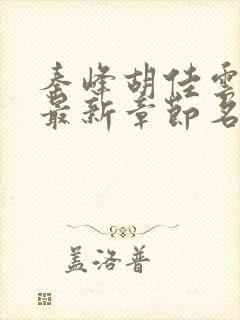 秦峰胡佳雲
最新章節名
盖洛普